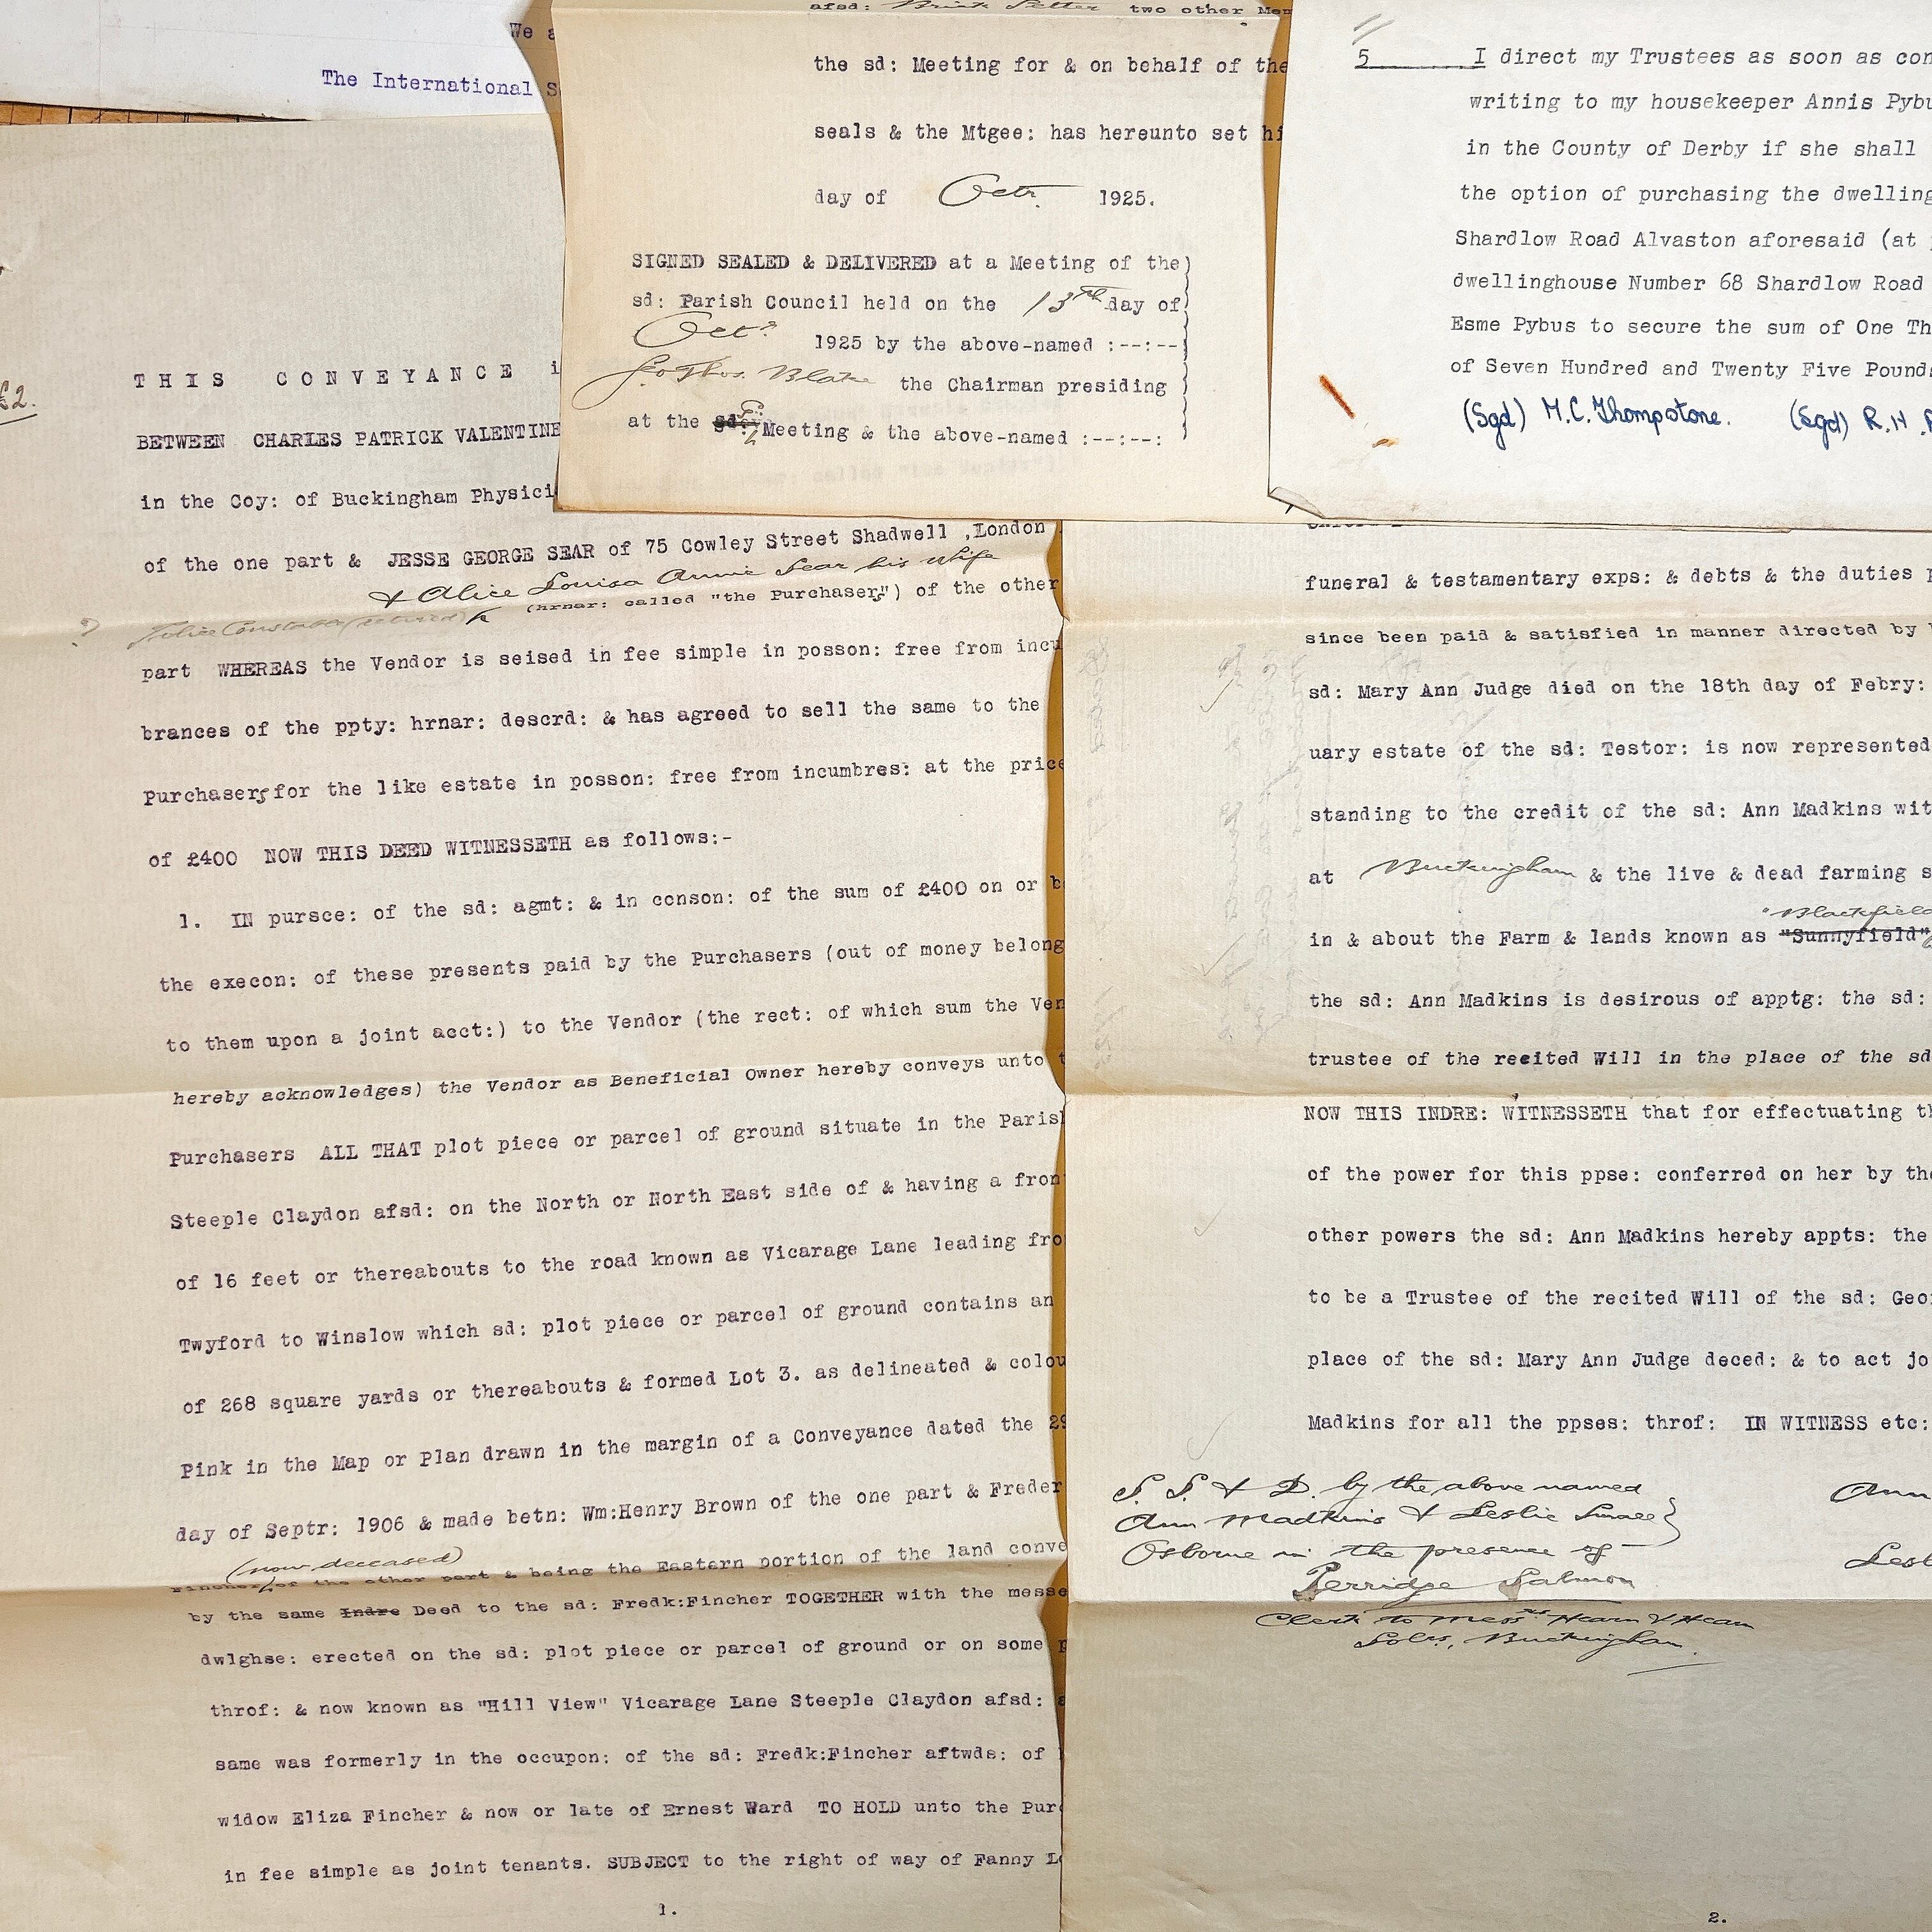 We a
The International S
afsd: two other Mem
the sd: Meeting for & on behalf of the
seals & the Mtgee: has hereunto set hi
day of Octr. 1925.
SIGNED SEALED & DELIVERED at a Meeting of the
sd: Parish Council held on the 13th day of
Oct?
1925 by the above-named :--:--
Geo Thos. Blake the Chairman presiding
at the sd: Meeting & the above-named :--:--:
5 I direct my Trustees as soon as con
writing to my housekeeper Annis Pybu
in the County of Derby if she shall
the option of purchasing the dwelling
Shardlow Road Alvaston aforesaid (at
dwellinghouse Number 68 Shardlow Road
Esme Pybus to secure the sum of One Th
of Seven Hundred and Twenty Five Pounds
(Sgd) M.C. Thompstone. (Sgd) R.H.
£2.
THIS CONVEYANCE i
BETWEEN CHARLES PATRICK VALENTINE
in the Coy: of Buckingham Physici
of the one part & JESSE GEORGE SEAR of 75 Cowley Street Shadwell ,London
& Alice Louisa Annie Sear his wife
(hrnar: called "the Purchasers") of the other
? Police Constable (retired)
part WHEREAS the Vendor is seised in fee simple in posson: free from incu
brances of the ppty: hrnar: descrd: & has agreed to sell the same to the
Purchasers for the like estate in posson: free from incumbres: at the price
of £400 NOW THIS DEED WITNESSETH as follows:-
1. IN pursce: of the sd: agmt: & in conson: of the sum of £400 on or b
the execon: of these presents paid by the Purchasers (out of money belong
to them upon a joint acct:) to the Vendor (the rect: of which sum the Ven
hereby acknowledges) the Vendor as Beneficial Owner hereby conveys unto t
Purchasers ALL THAT plot piece or parcel of ground situate in the Parish
Steeple Claydon afsd: on the North or North East side of & having a fron
of 16 feet or thereabouts to the road known as Vicarage Lane leading fro
Twyford to Winslow which sd: plot piece or parcel of ground contains an
of 268 square yards or thereabouts & formed Lot 3. as delineated & colou
Pink in the Map or Plan drawn in the margin of a Conveyance dated the 29
day of Septr: 1906 & made betn: Wm:Henry Brown of the one part & Freder
(now deceased)
Fincher of the other part & being the Eastern portion of the land conve
by the same Indre Deed to the sd: Fredk:Fincher TOGETHER with the messe
dwlghse: erected on the sd: plot piece or parcel of ground or on some p
throf: & now known as "Hill View" Vicarage Lane Steeple Claydon afsd: a
same was formerly in the occupon: of the sd: Fredk:Fincher aftwds: of
widow Eliza Fincher & now or late of Ernest Ward TO HOLD unto the Pur
in fee simple as joint tenants. SUBJECT to the right of way of Fanny L
1.
funeral & testamentary exps: & debts & the duties p
since been paid & satisfied in manner directed by
sd: Mary Ann Judge died on the 18th day of Febry:
uary estate of the sd: Testor: is now represented
standing to the credit of the sd: Ann Madkins wit
at Buckingham & the live & dead farming s
"Blackfield
in & about the Farm & lands known as "Sunnyfield"
the sd: Ann Madkins is desirous of apptg: the sd:
trustee of the recited Will in the place of the sd
NOW THIS INDRE: WITNESSETH that for effectuating th
of the power for this ppse: conferred on her by the
other powers the sd: Ann Madkins hereby appts: the
to be a Trustee of the recited Will of the sd: Geor
place of the sd: Mary Ann Judge deced: & to act jo
Madkins for all the ppses: throf: IN WITNESS etc:
S. S. & D. by the above named
Ann Madkins & Leslie Small
Osborne in the presence of —
Perridge Salmon
Clerk to Messrs Hearn & Hearn
Solrs, Buckingham.
Ann
Lesl
2.